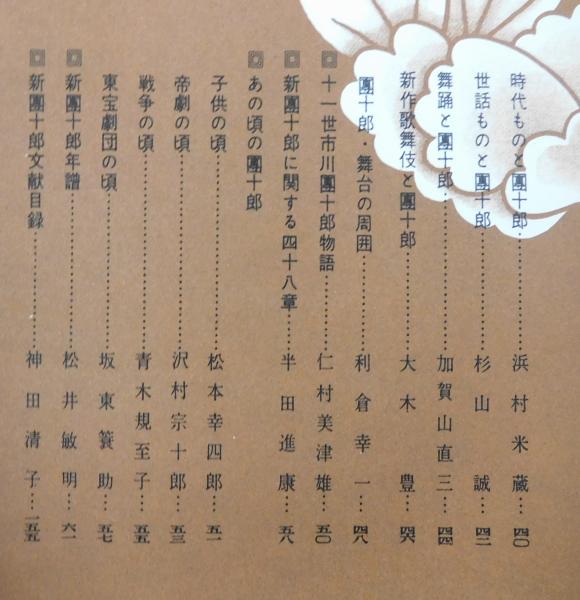 時代ものと團十郎……浜村米蔵…四〇
世話ものと團十郎……杉山誠…四二
舞踊と團十郎……加賀山直三…四四
新作歌舞伎と團十郎……大木豊…四六
團十郎・舞台の周囲……利倉幸一…四八
回十一世市川團十郎物語……仁村美津雄…五〇
回新團十郎に関する四十八章……半田進康…五八
回あの頃の團十郎
子供の頃……松本幸四郎…五一
帝劇の頃……沢村宗十郎…五三
戦争の頃……青木規至子…五五
東宝劇団の頃……坂東簑助…五七
回新團十郎年譜……松井敏明…六一
回新團十郎文献目録……神田清子…一五五